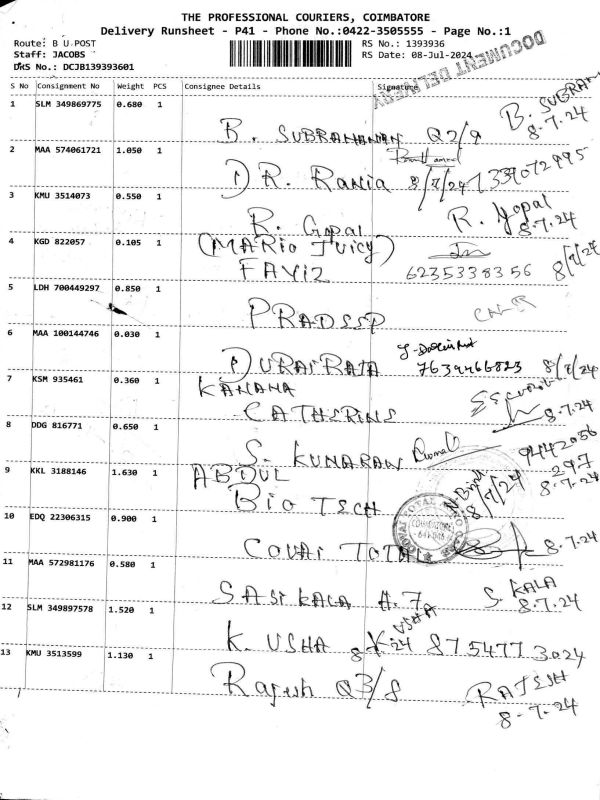 THE PROFESSIONAL COURIERS, COIMBATORE
Delivery Runsheet - P41 - Phone No.:0422-3505555 - Page No.:1
Route: B U POST
RS No.: 1393936
Staff: JACOBS
RS Date: 08-Jul-2024
DRS No.: DCJB139393601
DOCUMENT DELIVERY
S No Consignment No Weight PCS Consignee Details Signature
1 SLM 349869775 0.680 1
B. SUBRAMANIAN Q2/9 B. SUBRAM
8.7.24
2 MAA 574061721 1.050 1
DR. Rania 8/7/24 7339072995
3 KMU 3514073 0.550 1
R. Gopal R. Gopal
8.7.24
4 KGD 822057 0.105 1
(MARIO JUICY)
FAYIZ 6235338356 8/7/24
5 LDH 700449297 0.850 1
PRADEEP
6 MAA 100144746 0.030 1
DURAI RAJA 7639466823 8/7/24
7 KSM 935461 0.360 1
KANANA
CATHERINE 8.7.24
8 DDG 816771 0.650 1
S. KUMARAN 9442056
297
8.7.24
9 KKL 3188146 1.630 1
ABDUL
BIO TECH 8/7/24
10 EDQ 22306315 0.900 1
COVAI TOTAL 8.7.24
11 MAA 572981176 0.580 1
SASI KALA A.7 S. KALA
8.7.24
12 SLM 349897578 1.520 1
K. USHA USHA 8754773024
13 KMU 3513599 1.130 1
Rajesh Q3/8 RAJESH
8.7.24